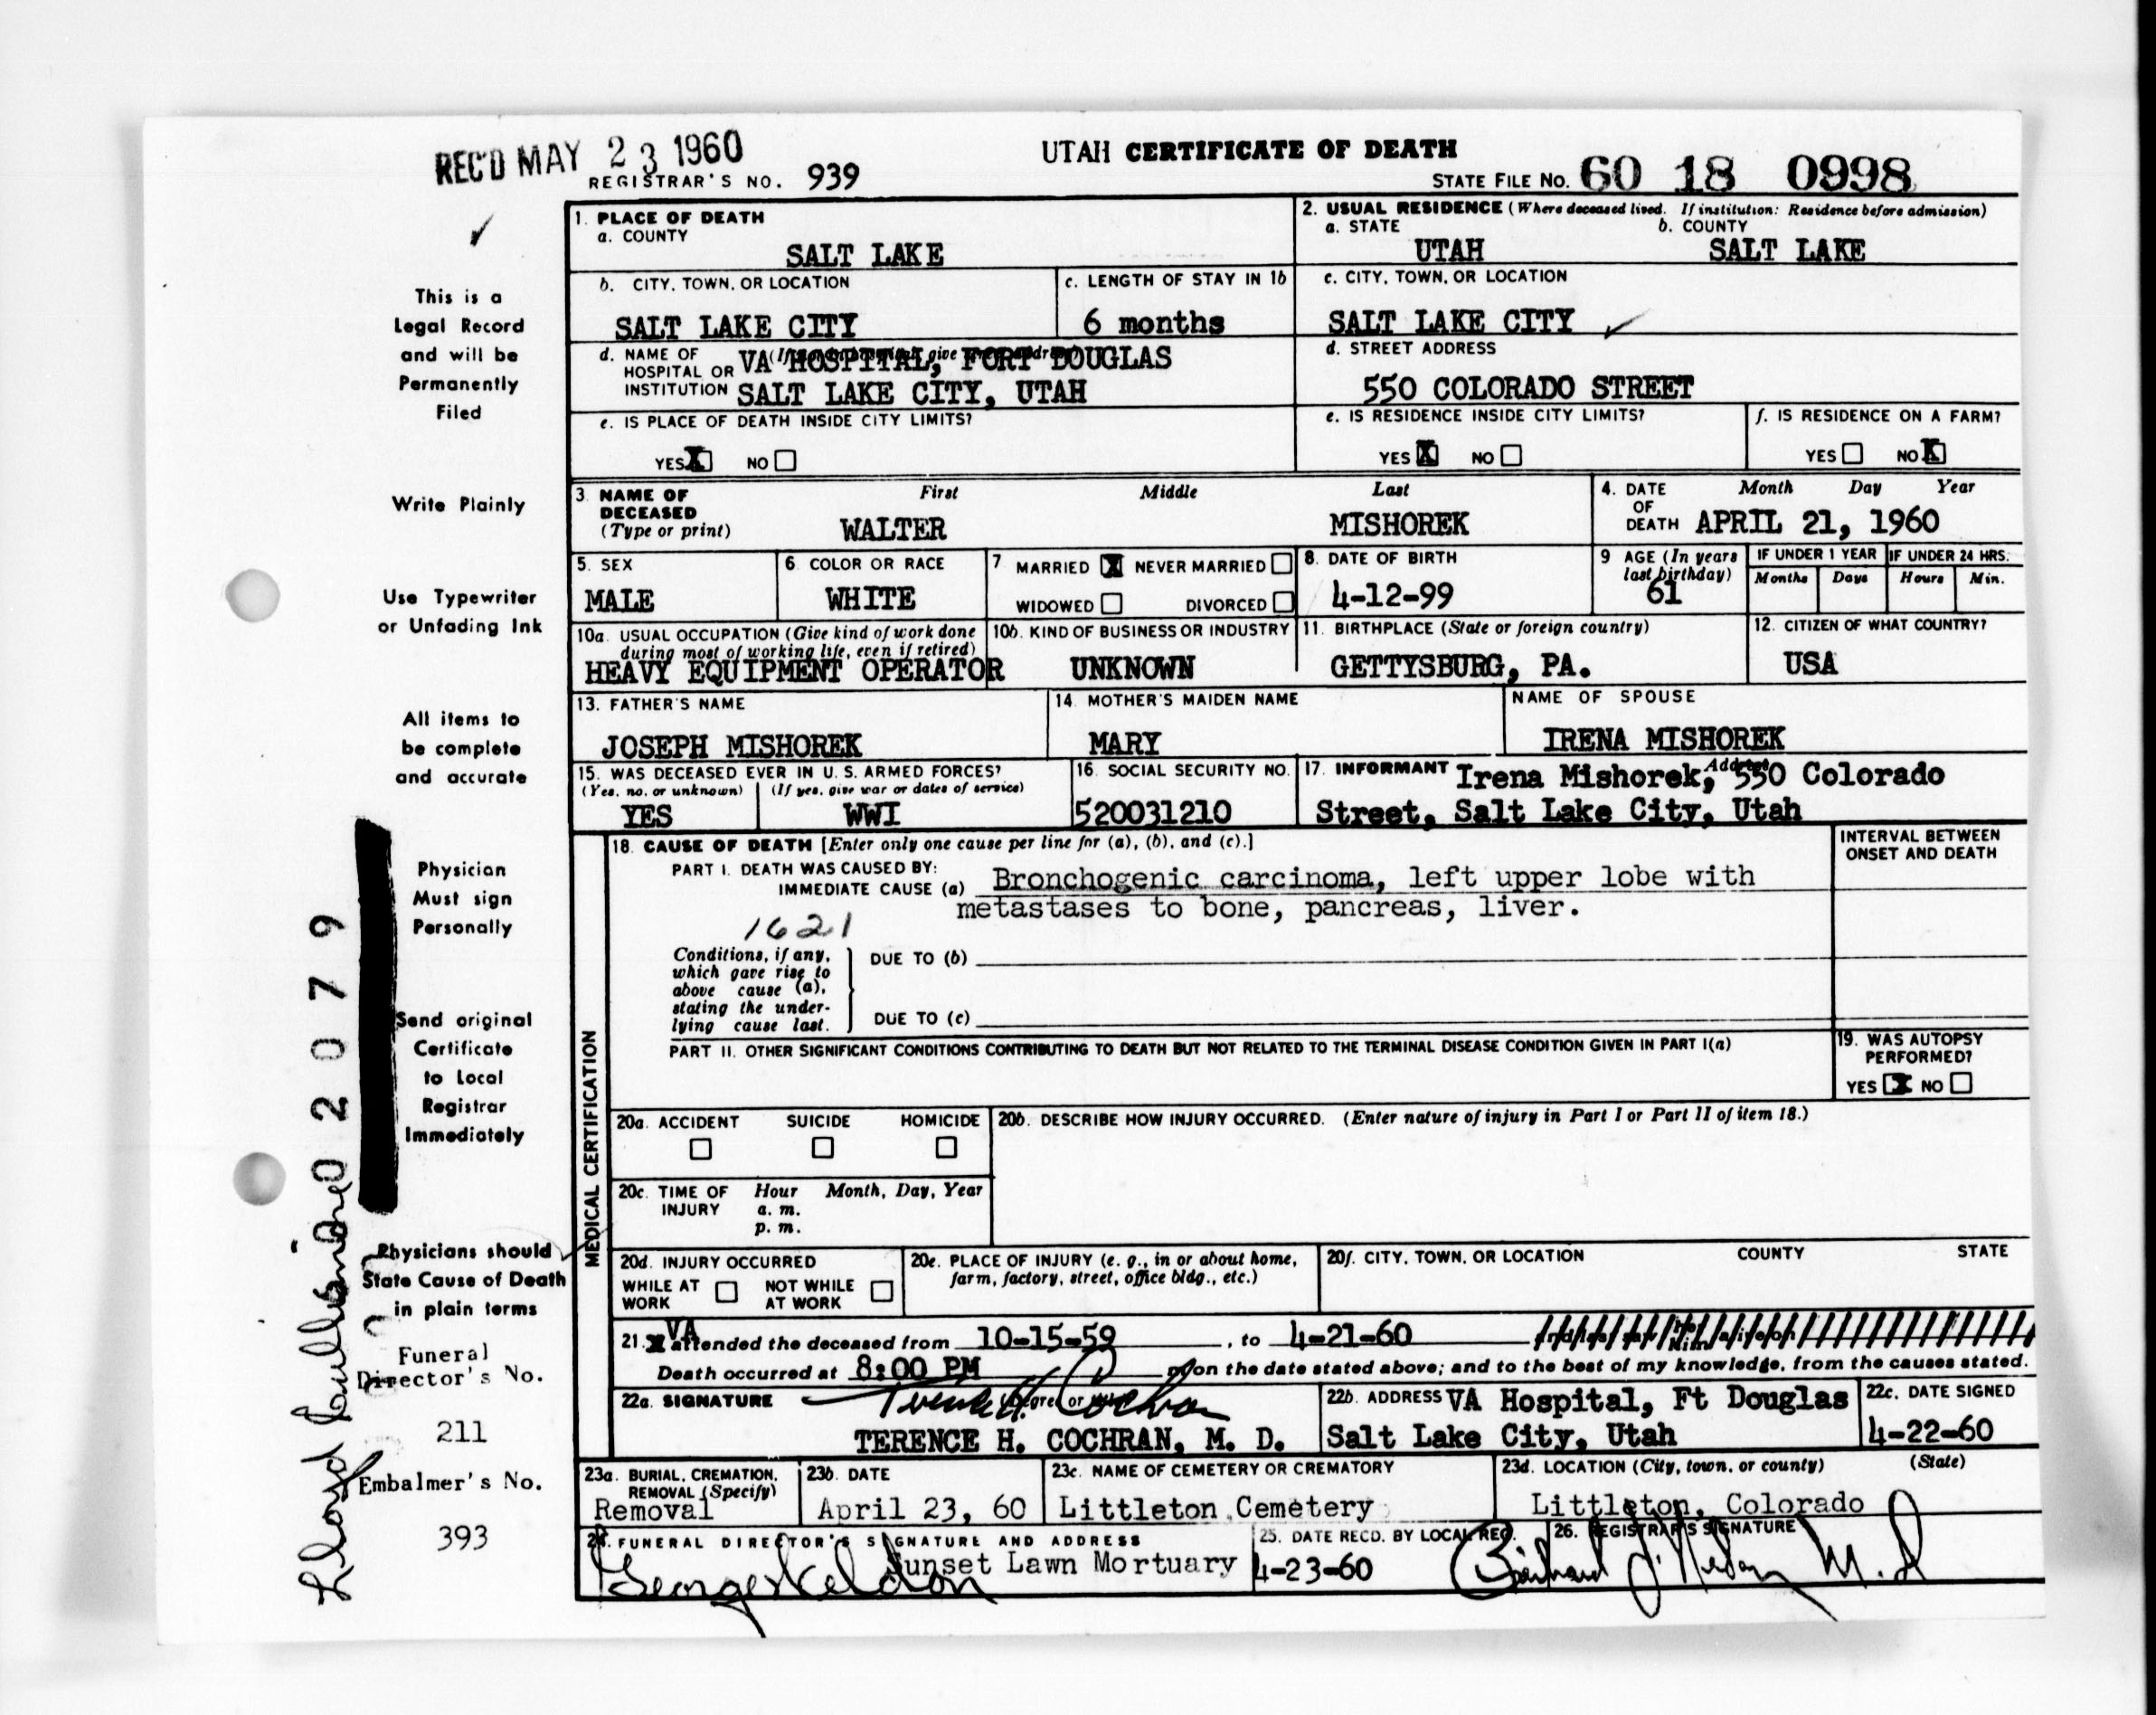 REC'D MAY 23 1960
UTAH CERTIFICATE OF DEATH
REGISTRAR'S NO. 939
STATE FILE NO. 60 18 0998
This is a
Legal Record
and will be
Permanently
Filed
Write Plainly
Use Typewriter
or Unfading Ink
All items to
be complete
and accurate
Physician
Must sign
Personally
Send original
Certificate
to Local
Registrar
Immediately
Physicians should
State Cause of Death
in plain terms
Funeral
Director's No.
211
Embalmer's No.
393
02079
1. PLACE OF DEATH
a. COUNTY
SALT LAKE
2. USUAL RESIDENCE (Where deceased lived. If institution: Residence before admission)
a. STATE b. COUNTY
UTAH SALT LAKE
b. CITY, TOWN, OR LOCATION
SALT LAKE CITY
c. LENGTH OF STAY IN 1b
6 months
c. CITY, TOWN, OR LOCATION
SALT LAKE CITY
d. NAME OF HOSPITAL OR INSTITUTION
VA HOSPITAL, FORT DOUGLAS
SALT LAKE CITY, UTAH
d. STREET ADDRESS
550 COLORADO STREET
e. IS PLACE OF DEATH INSIDE CITY LIMITS?
YES X NO
e. IS RESIDENCE INSIDE CITY LIMITS?
YES X NO
f. IS RESIDENCE ON A FARM?
YES NO X
3. NAME OF DECEASED (Type or print)
First Middle Last
WALTER MISHOREK
4. DATE OF DEATH
Month Day Year
APRIL 21, 1960
5. SEX
MALE
6. COLOR OR RACE
WHITE
7. MARRIED X NEVER MARRIED
WIDOWED DIVORCED
8. DATE OF BIRTH
4-12-99
9. AGE (In years last birthday)
61
IF UNDER 1 YEAR
Months Days
IF UNDER 24 HRS.
Hours Min.
10a. USUAL OCCUPATION (Give kind of work done during most of working life, even if retired)
HEAVY EQUIPMENT OPERATOR
10b. KIND OF BUSINESS OR INDUSTRY
UNKNOWN
11. BIRTHPLACE (State or foreign country)
GETTYSBURG, PA.
12. CITIZEN OF WHAT COUNTRY?
USA
13. FATHER'S NAME
JOSEPH MISHOREK
14. MOTHER'S MAIDEN NAME
MARY
NAME OF SPOUSE
IRENA MISHOREK
15. WAS DECEASED EVER IN U. S. ARMED FORCES?
(Yes, no, or unknown) (If yes, give war or dates of service)
YES WWI
16. SOCIAL SECURITY NO.
520031210
17. INFORMANT Address
Irena Mishorek, 550 Colorado
Street, Salt Lake City, Utah
MEDICAL CERTIFICATION
18. CAUSE OF DEATH [Enter only one cause per line for (a), (b), and (c).]
INTERVAL BETWEEN
ONSET AND DEATH
PART I. DEATH WAS CAUSED BY:
IMMEDIATE CAUSE (a) Bronchogenic carcinoma, left upper lobe with
metastases to bone, pancreas, liver.
1621
Conditions, if any,
which gave rise to
above cause (a),
stating the under-
lying cause last.
DUE TO (b)
DUE TO (c)
PART II. OTHER SIGNIFICANT CONDITIONS CONTRIBUTING TO DEATH BUT NOT RELATED TO THE TERMINAL DISEASE CONDITION GIVEN IN PART I(a)
19. WAS AUTOPSY
PERFORMED?
YES X NO
20a. ACCIDENT SUICIDE HOMICIDE
20b. DESCRIBE HOW INJURY OCCURRED. (Enter nature of injury in Part I or Part II of item 18.)
20c. TIME OF INJURY
Hour Month, Day, Year
a. m.
p. m.
20d. INJURY OCCURRED
WHILE AT WORK NOT WHILE AT WORK
20e. PLACE OF INJURY (e. g., in or about home,
farm, factory, street, office bldg., etc.)
20f. CITY, TOWN, OR LOCATION COUNTY STATE
21. VA attended the deceased from 10-15-59, to 4-21-60
Death occurred at 8:00 PM on the date stated above; and to the best of my knowledge, from the causes stated.
22a. SIGNATURE
Terence H. Cochran
TERENCE H. COCHRAN, M. D.
22b. ADDRESS VA Hospital, Ft Douglas
Salt Lake City, Utah
22c. DATE SIGNED
4-22-60
23a. BURIAL, CREMATION,
REMOVAL (Specify)
Removal
23b. DATE
April 23, 60
23c. NAME OF CEMETERY OR CREMATORY
Littleton Cemetery
23d. LOCATION (City, town, or county) (State)
Littleton, Colorado
24. FUNERAL DIRECTOR'S SIGNATURE AND ADDRESS
Sunset Lawn Mortuary
25. DATE RECD. BY LOCAL REG.
4-23-60
26. REGISTRAR'S SIGNATURE